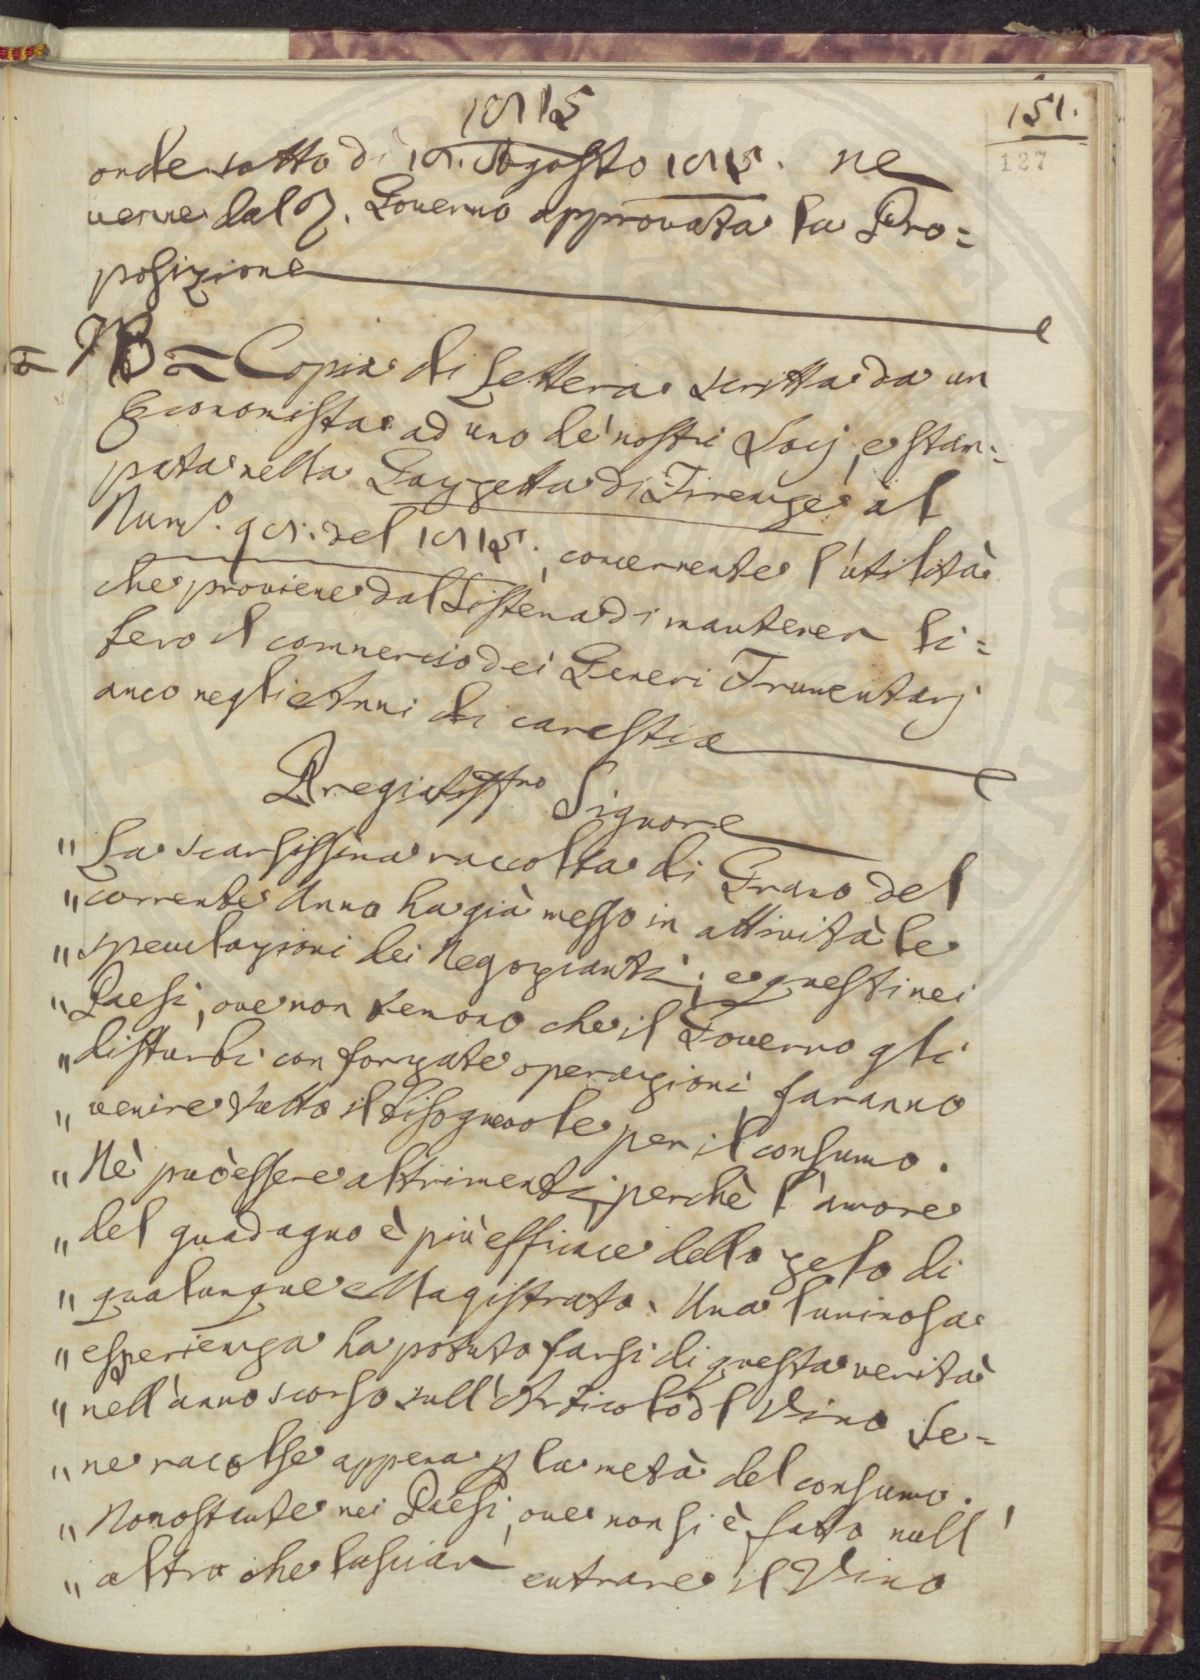 1815
151.
127
onde sotto dì 18. Agosto 1815. ne
venne dal R. Governo approvata la Pro=
posizione
= NB = Copia di Lettera scritta da un
Economista ad uno de' nostri Socj, e stam=
pata nella Gazzetta di Firenze al
Num.º 98. del 1815. concernente l'utilità
che proviene dal Sistema di mantener li=
bero il commercio dei Generi Frumentarj
anco negli Anni di carestia
Pregiatissmo Signore
" La scarsissima raccolta di Grano del
" corrente Anno ha già messo in attività le
" speculazioni dei Negozianti; e questi nei
" Paesi, ove non temono che il Governo gli
" disturbi con forzate operazioni, faranno
" venire tutto il bisognevole per il consumo.
" Nè può essere altrimenti; perchè l'amore
" del guadagno è più efficace dello zelo di
" qualunque Magistrato. Una luminosa
" esperienza ha potuto farsi di questa verità
" nell'anno scorso sull'Articolo dl Vino Se=
" ne racolse appena p la metà del consumo.
" Nonostante nei Paesi, ove non si è fatto null'
" altro che lasciar entrare il Vino